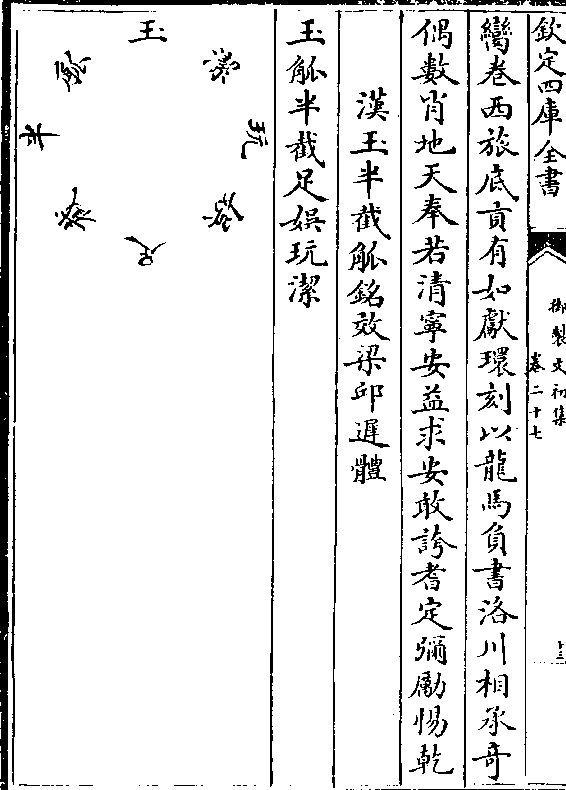 欽定四庫全書
御製文初集
卷二十七
十三
臠卷西旅底貢有如獻環刻以龍馬負書洛川相承奇
偶數肖地天奉若清寧安益求安敢誇耆定彌勵惕乾
漢玉半截觚銘效梁邱遲體
玉觚半截足娛玩潔
玉觚半截足娛玩潔